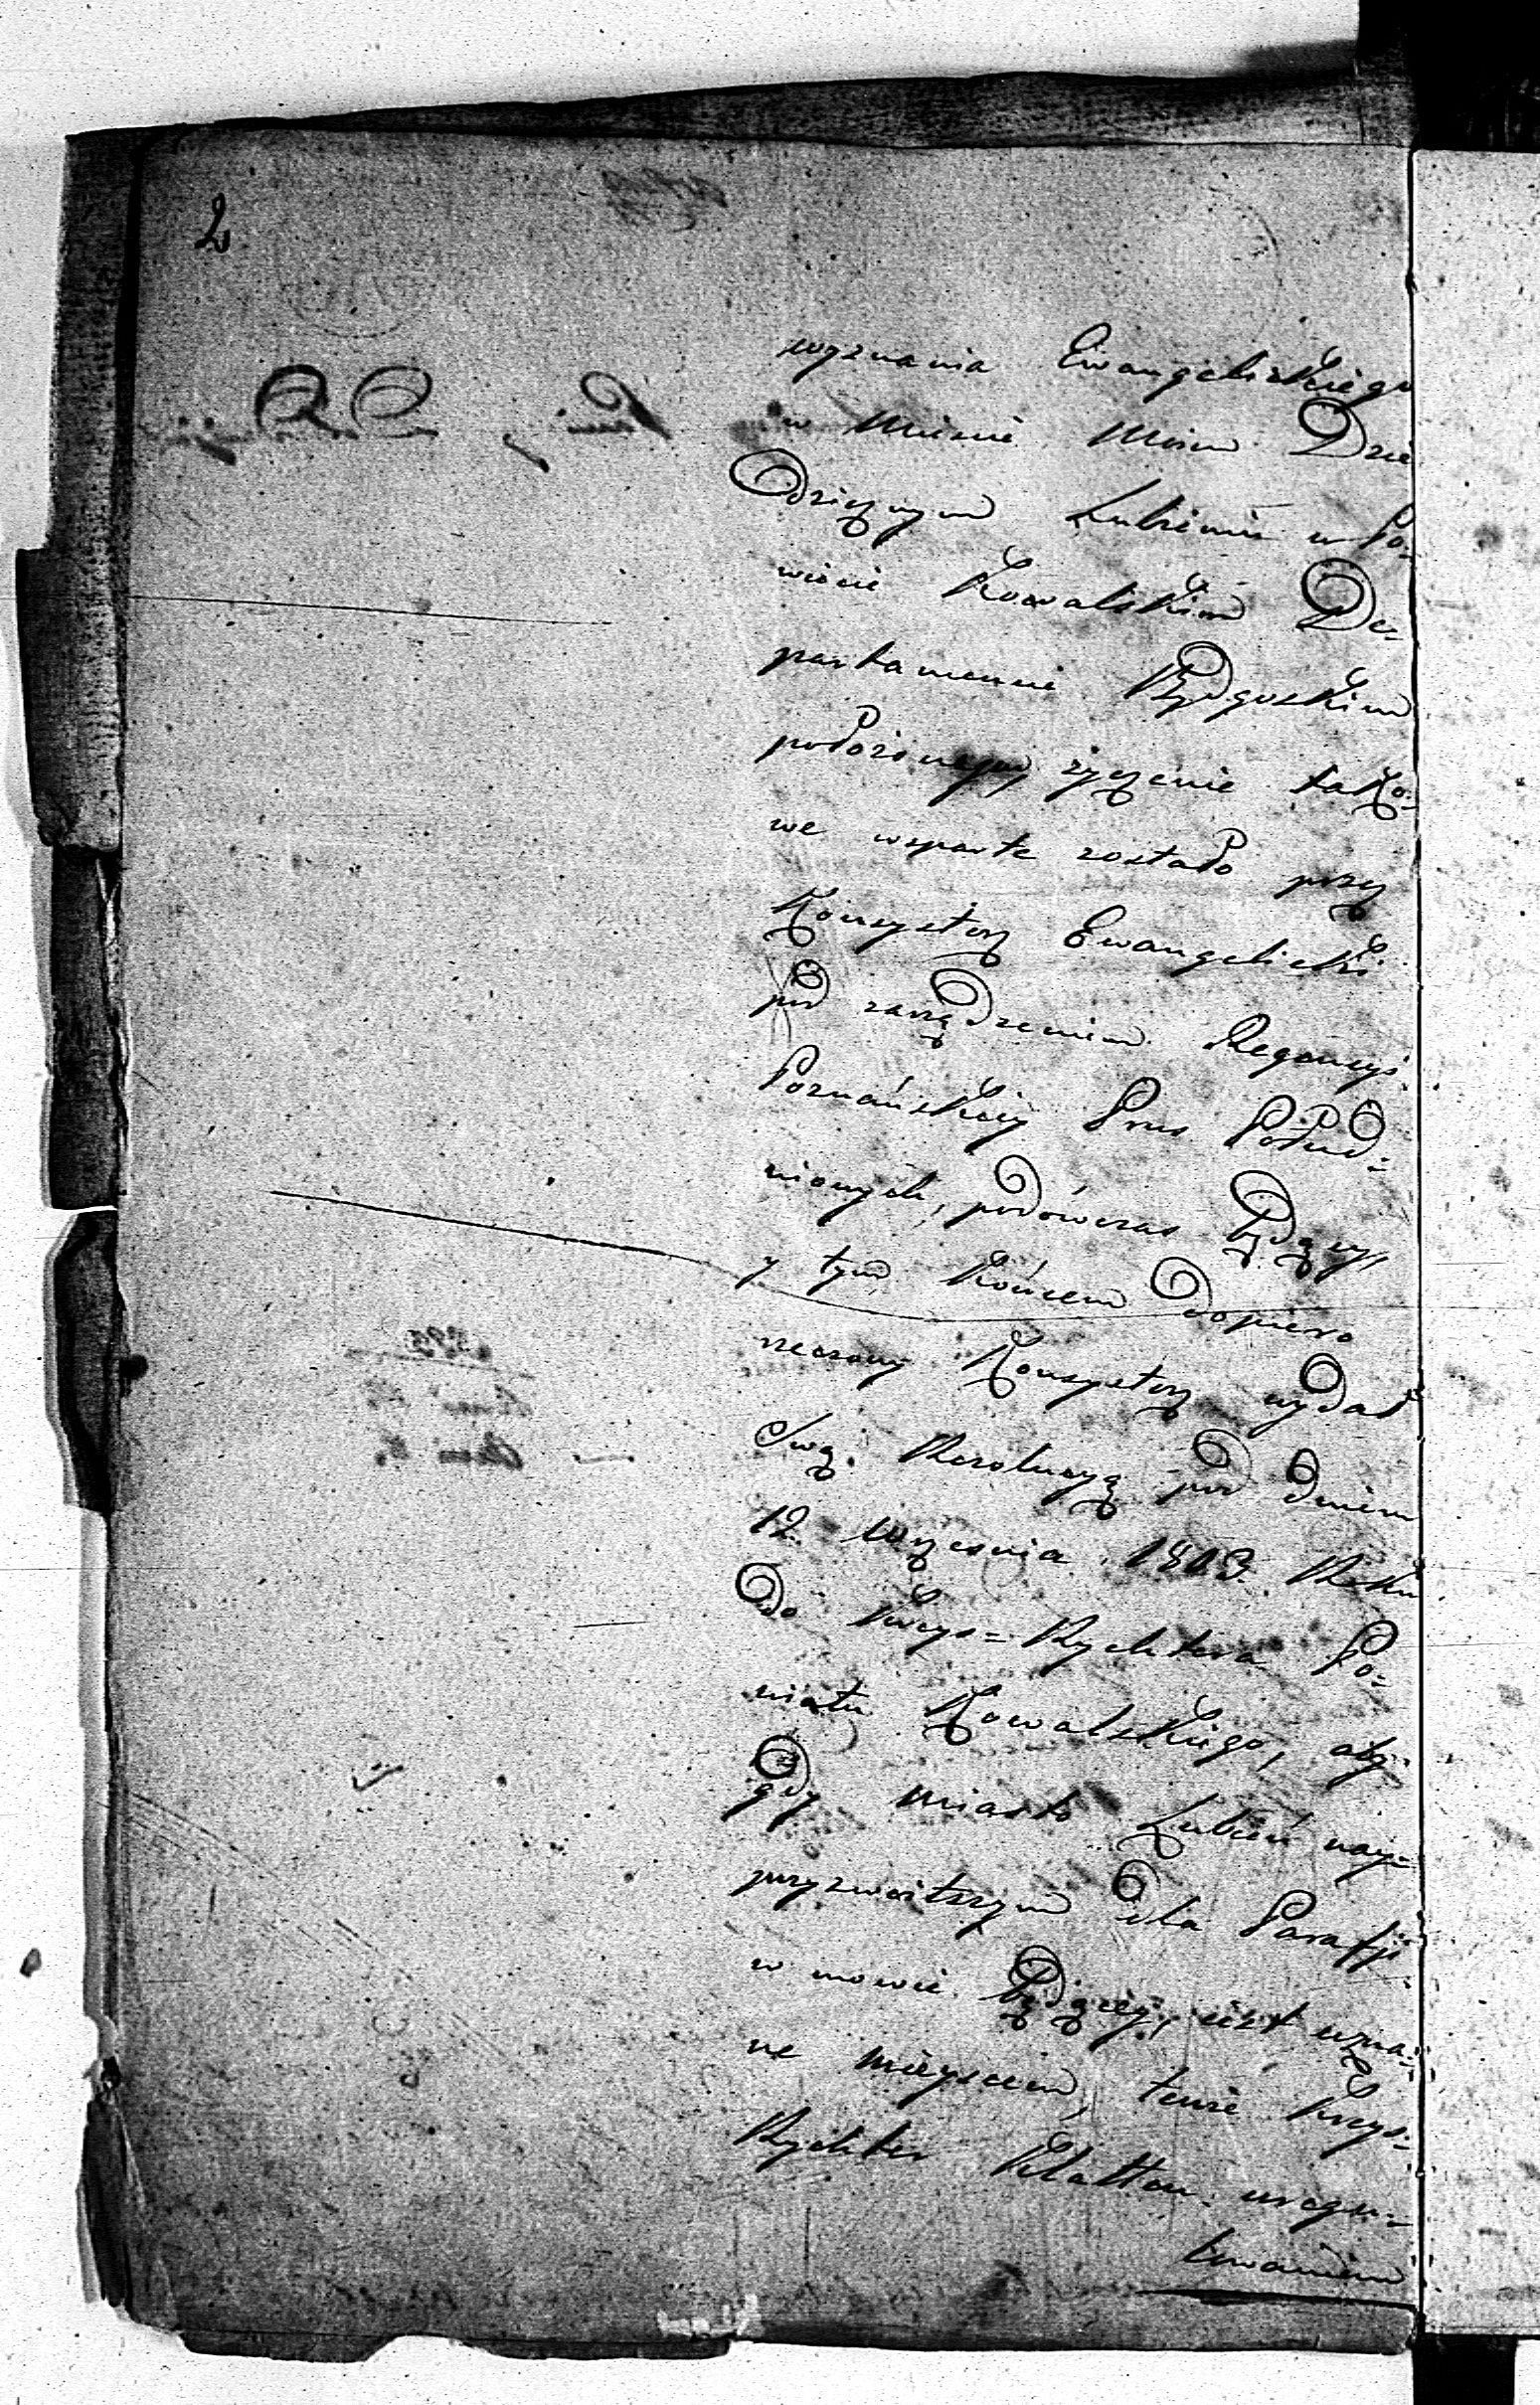 2
wyznania Ewangelickiego
w Miescie Moim Dzie
dzicznym Lubieniu w Po-
wiecie Kowalskim De-
partamencie Bydgoskim
położonego, życzenie tako-
we wsparte zostało przez
Konsystorz Ewangelicki
pod zarządzeniem Regencyi
Poznańskiey Prus Połud-
niowych, podówczas będący,
y tym końcem dopiero
rzeczony Konsystorz wydał
Swą Rezolucyą pod dniem
12 Września 1803 Roku
do Kreys-Rychtera Po-
wiatu Kowalskiego, aby
gdy miasto Lubień nay-
przyzwoitszym dla Parafji
w mowie będącey, iest uzna-
ne mieyscem, tenże Kreys-
Rychter uregu-
lowaniem